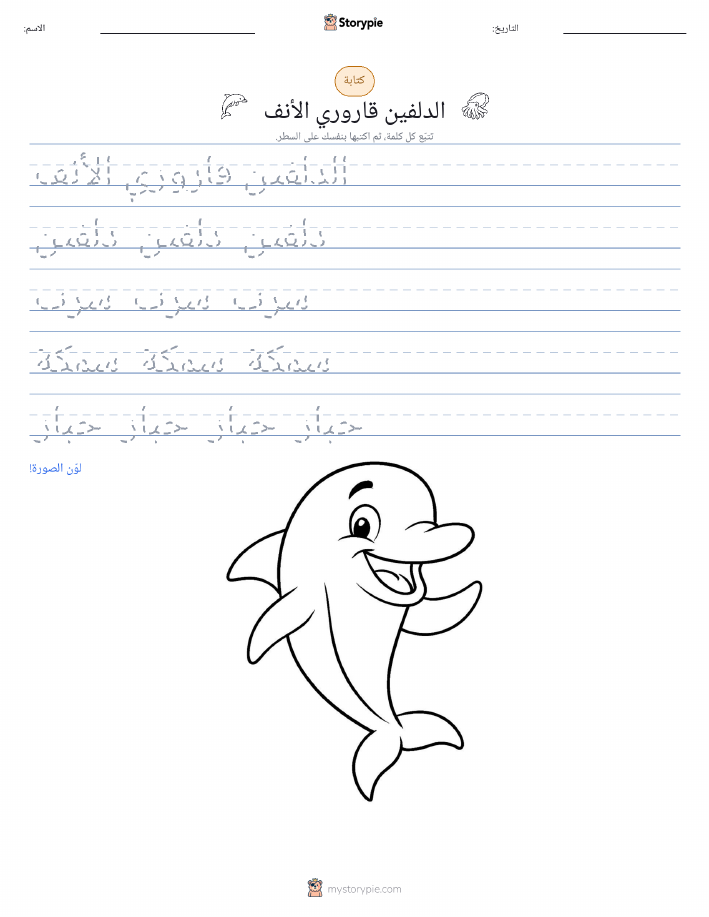 Storypie
الاسم:
التاريخ:
كتابة
الدلفين قاروري الأنف
تتبّع كل كلمة، ثم اكتبها بنفسك على السطر.
الدلفين قاروري الأنف
دلفين دلفين دلفين
سرب سرب سرب
سمكة سمكة سمكة
حبار حبار حبار حبار
لوّن الصورة!
mystorypie.com